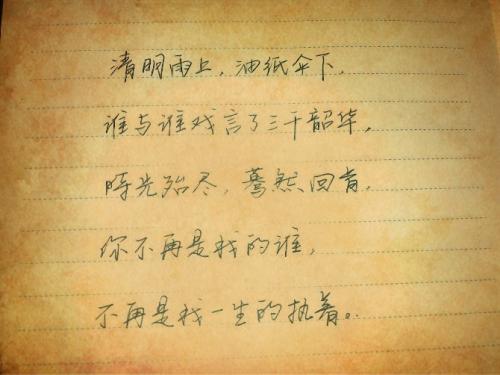 清明雨上，油纸伞下，
谁与谁戏言了三千韶华，
时光殆尽，蓦然回首，
你不再是我的谁，
不再是我一生的执着。